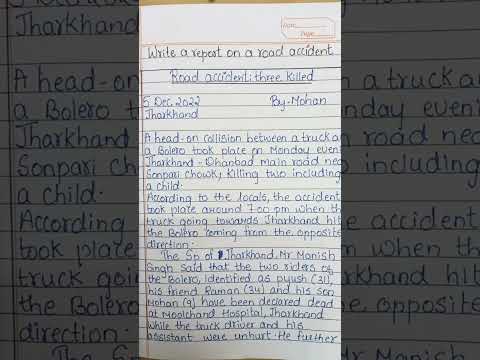 Date
Page
Write a report on a road accident
Road accident: three killed
5 Dec. 2022 By-Mohan
Jharkhand
A head-on collision between a truck an
a Bolero took place on Monday eveni
Jharkhand - Dhanbad main road nea
Sonpari chowk, killing two including
a child.
According to the locals, the accident
took place around 7:00 pm when th
truck going towards Jharkhand hit
the Bolero coming from the opposite
direction:
The Sp of Jharkhand, Mr Manish
Singh said that the two riders of
the Bolero, identified as pyush (31),
his friend Raman (34) and his son
Mohan (9) have been declared dead
at Moolchand Hospital, Jharkhand
while the truck driver and his
assistant were unhurt. He further